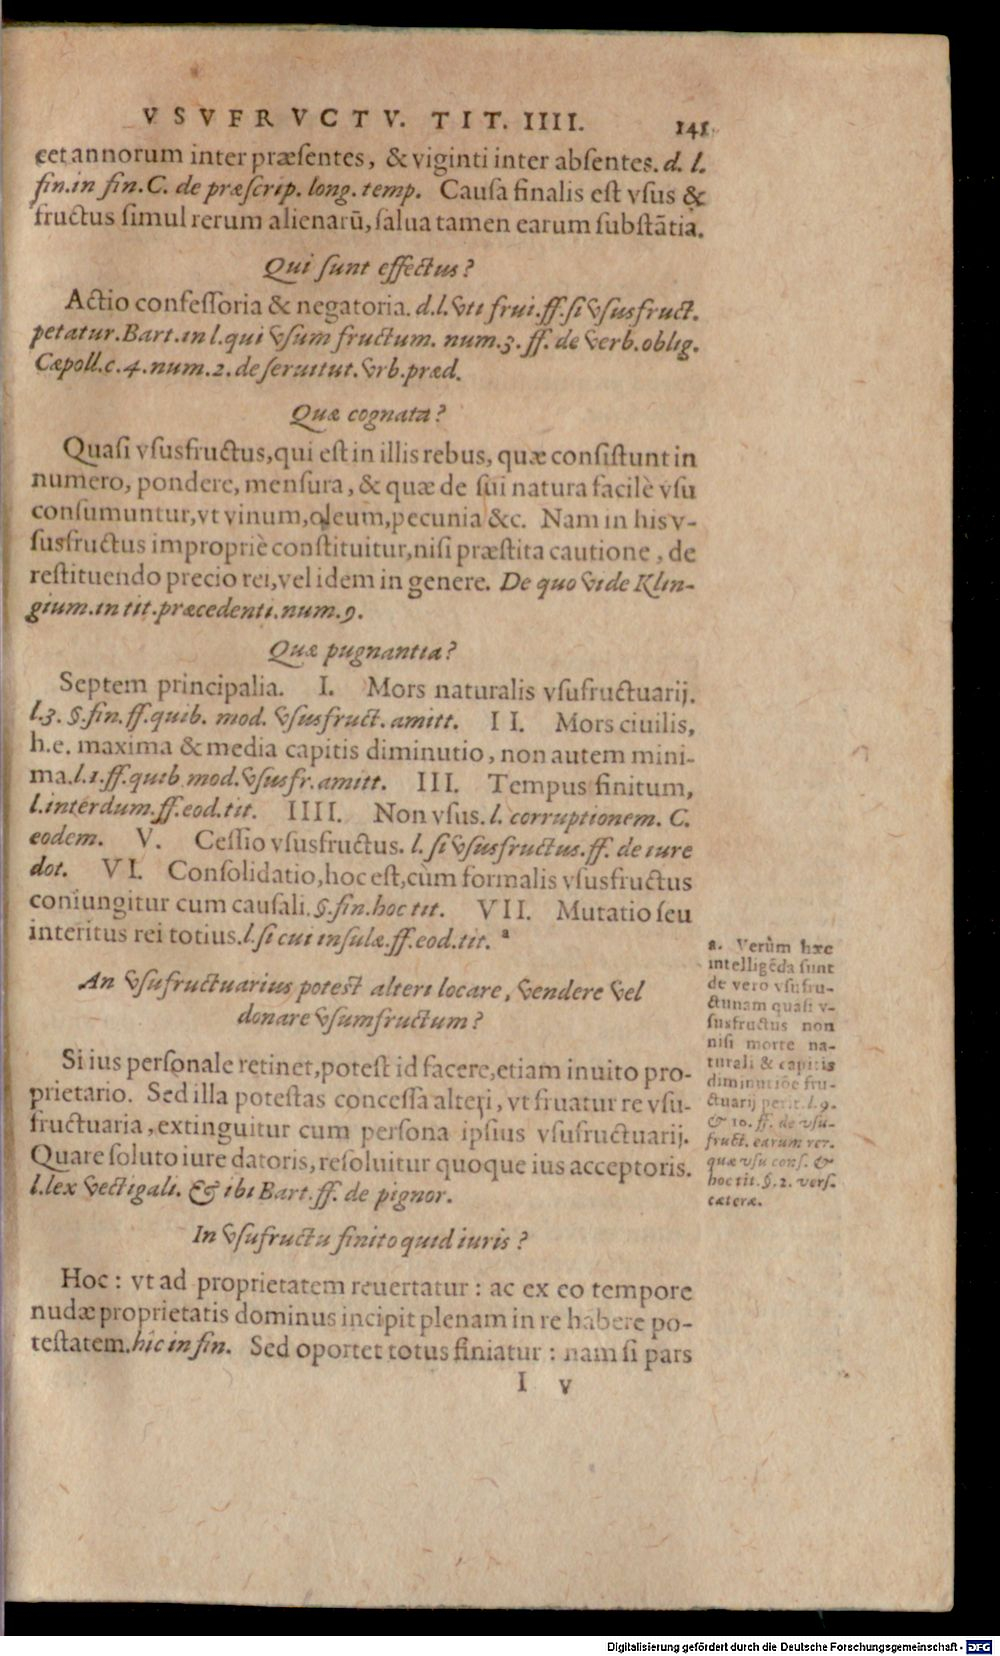 VSVFRVCTV. TIT. IIII. 141
cet annorum inter præsentes, & viginti inter absentes. d. l.
fin. in fin. C. de præscrip. long. temp. Causa finalis est vsus &
fructus simul rerum alienarū, salua tamen earum substātia.
Qui sunt effectus?
Actio confessoria & negatoria. d. l. vti frui. ff. si vsusfruct.
petatur. Bart. in l. qui vsum fructum. num. 3. ff. de verb. oblig.
Cæpoll. c. 4. num. 2. de seruitut. vrb. præd.
Quæ cognata?
Quasi vsusfructus, qui est in illis rebus, quæ consistunt in
numero, pondere, mensura, & quæ de sui natura facilè vsu
consumuntur, vt vinum, oleum, pecunia &c. Nam in his v-
susfructus impropriè constituitur, nisi præstita cautione, de
restituendo precio rei, vel idem in genere. De quo vide Klin-
gium. in tit. præcedenti. num. 9.
Quæ pugnantia?
Septem principalia. I. Mors naturalis vsufructuarij.
l. 3. §. fin. ff. quib. mod. vsusfruct. amitt. II. Mors ciuilis,
h.e. maxima & media capitis diminutio, non autem mini-
ma. l. 1. ff. quib mod. vsusfr. amitt. III. Tempus finitum,
l. interdum. ff. eod. tit. IIII. Non vsus. l. corruptionem. C.
eodem. V. Cessio vsusfructus. l. si vsusfructus. ff. de iure
dot. VI. Consolidatio, hoc est, cùm formalis vsusfructus
coniungitur cum causali. §. fin. hoc tit. VII. Mutatio seu
interitus rei totius. l. si cui insulæ. ff. eod. tit. a
An vsufructuarius potest alteri locare, vendere vel
donare vsumfructum?
Si ius personale retinet, potest id facere, etiam inuito pro-
prietario. Sed illa potestas concessa alteri, vt fruatur re vsu-
fructuaria, extinguitur cum persona ipsius vsufructuarij.
Quare soluto iure datoris, resoluitur quoque ius acceptoris.
l. lex vectigali. & ibi Bart. ff. de pignor.
In vsufructu finito quid iuris?
Hoc: vt ad proprietatem reuertatur: ac ex eo tempore
nudæ proprietatis dominus incipit plenam in re habere po-
testatem. hîc in fin. Sed oportet totus finiatur: nam si pars
I v
a. Verùm hæc
intelligēda sunt
de vero vsufru-
ctunam quasi v-
susfructus non
nisi morte na-
turali & capitis
diminutiōe fru-
ctuarij perit. l. 9.
& 10. ff. de vsu-
fruct. earum rer.
quæ vsu cons. &
hoc tit. §. 2. vers.
cæteræ.
Digitalisierung gefördert durch die Deutsche Forschungsgemeinschaft - DFG